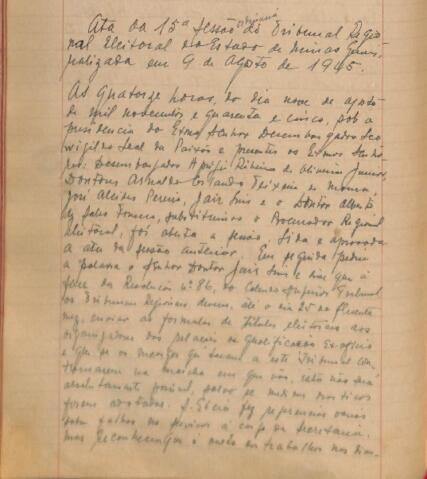 Ata da 15ª sessão ordinaria do Tribunal Regio
nal Eleitoral do Estado de Minas Gerais,
realizada em 9 de Agosto de 1945.
As quatorze horas, do dia nove de agosto
de mil novecentos e quarenta e cinco, sob a
presidencia do Exmo Senhor Desembargador Leo
vigildo Leal da Paixão e presentes os Exmos Senho
res: Desembargador Ribeiro de Oliveira Junior,
Doutores Arnaldo Teixeira de Moura,
José Alcides Pereira, Jair Lins e o Doutor
de Salles Fonseca, substituindo o Procurador Regional
eleitoral, foi aberta a sessão, lida e aprovada
a ata da sessão anterior. Em seguida pediu
a palavra o Senhor Doutor Jair Lins e disse que à
face da Resolução nº 86, do Colendo Superior Tribunal
os Tribunais Regionais devem, até o dia 25 do fluente
mez, enviar as formulas de titulos eleitorais aos
organizadores das relações de qualificação Ex-oficio
e que se os mesmos que tocam a este Tribunal con
tinuarem na marcha em que vão, isto não será
absolutamente possivel, salvo se medidas
forem adotadas. S. Excia fez
falhas no serviço a cargo da Secretaria,
mas reconhecendo que os trabalhos nos